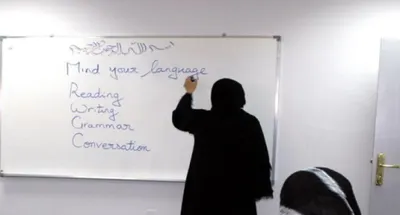 Mind your language
Reading
Writing
Grammar
Conversation